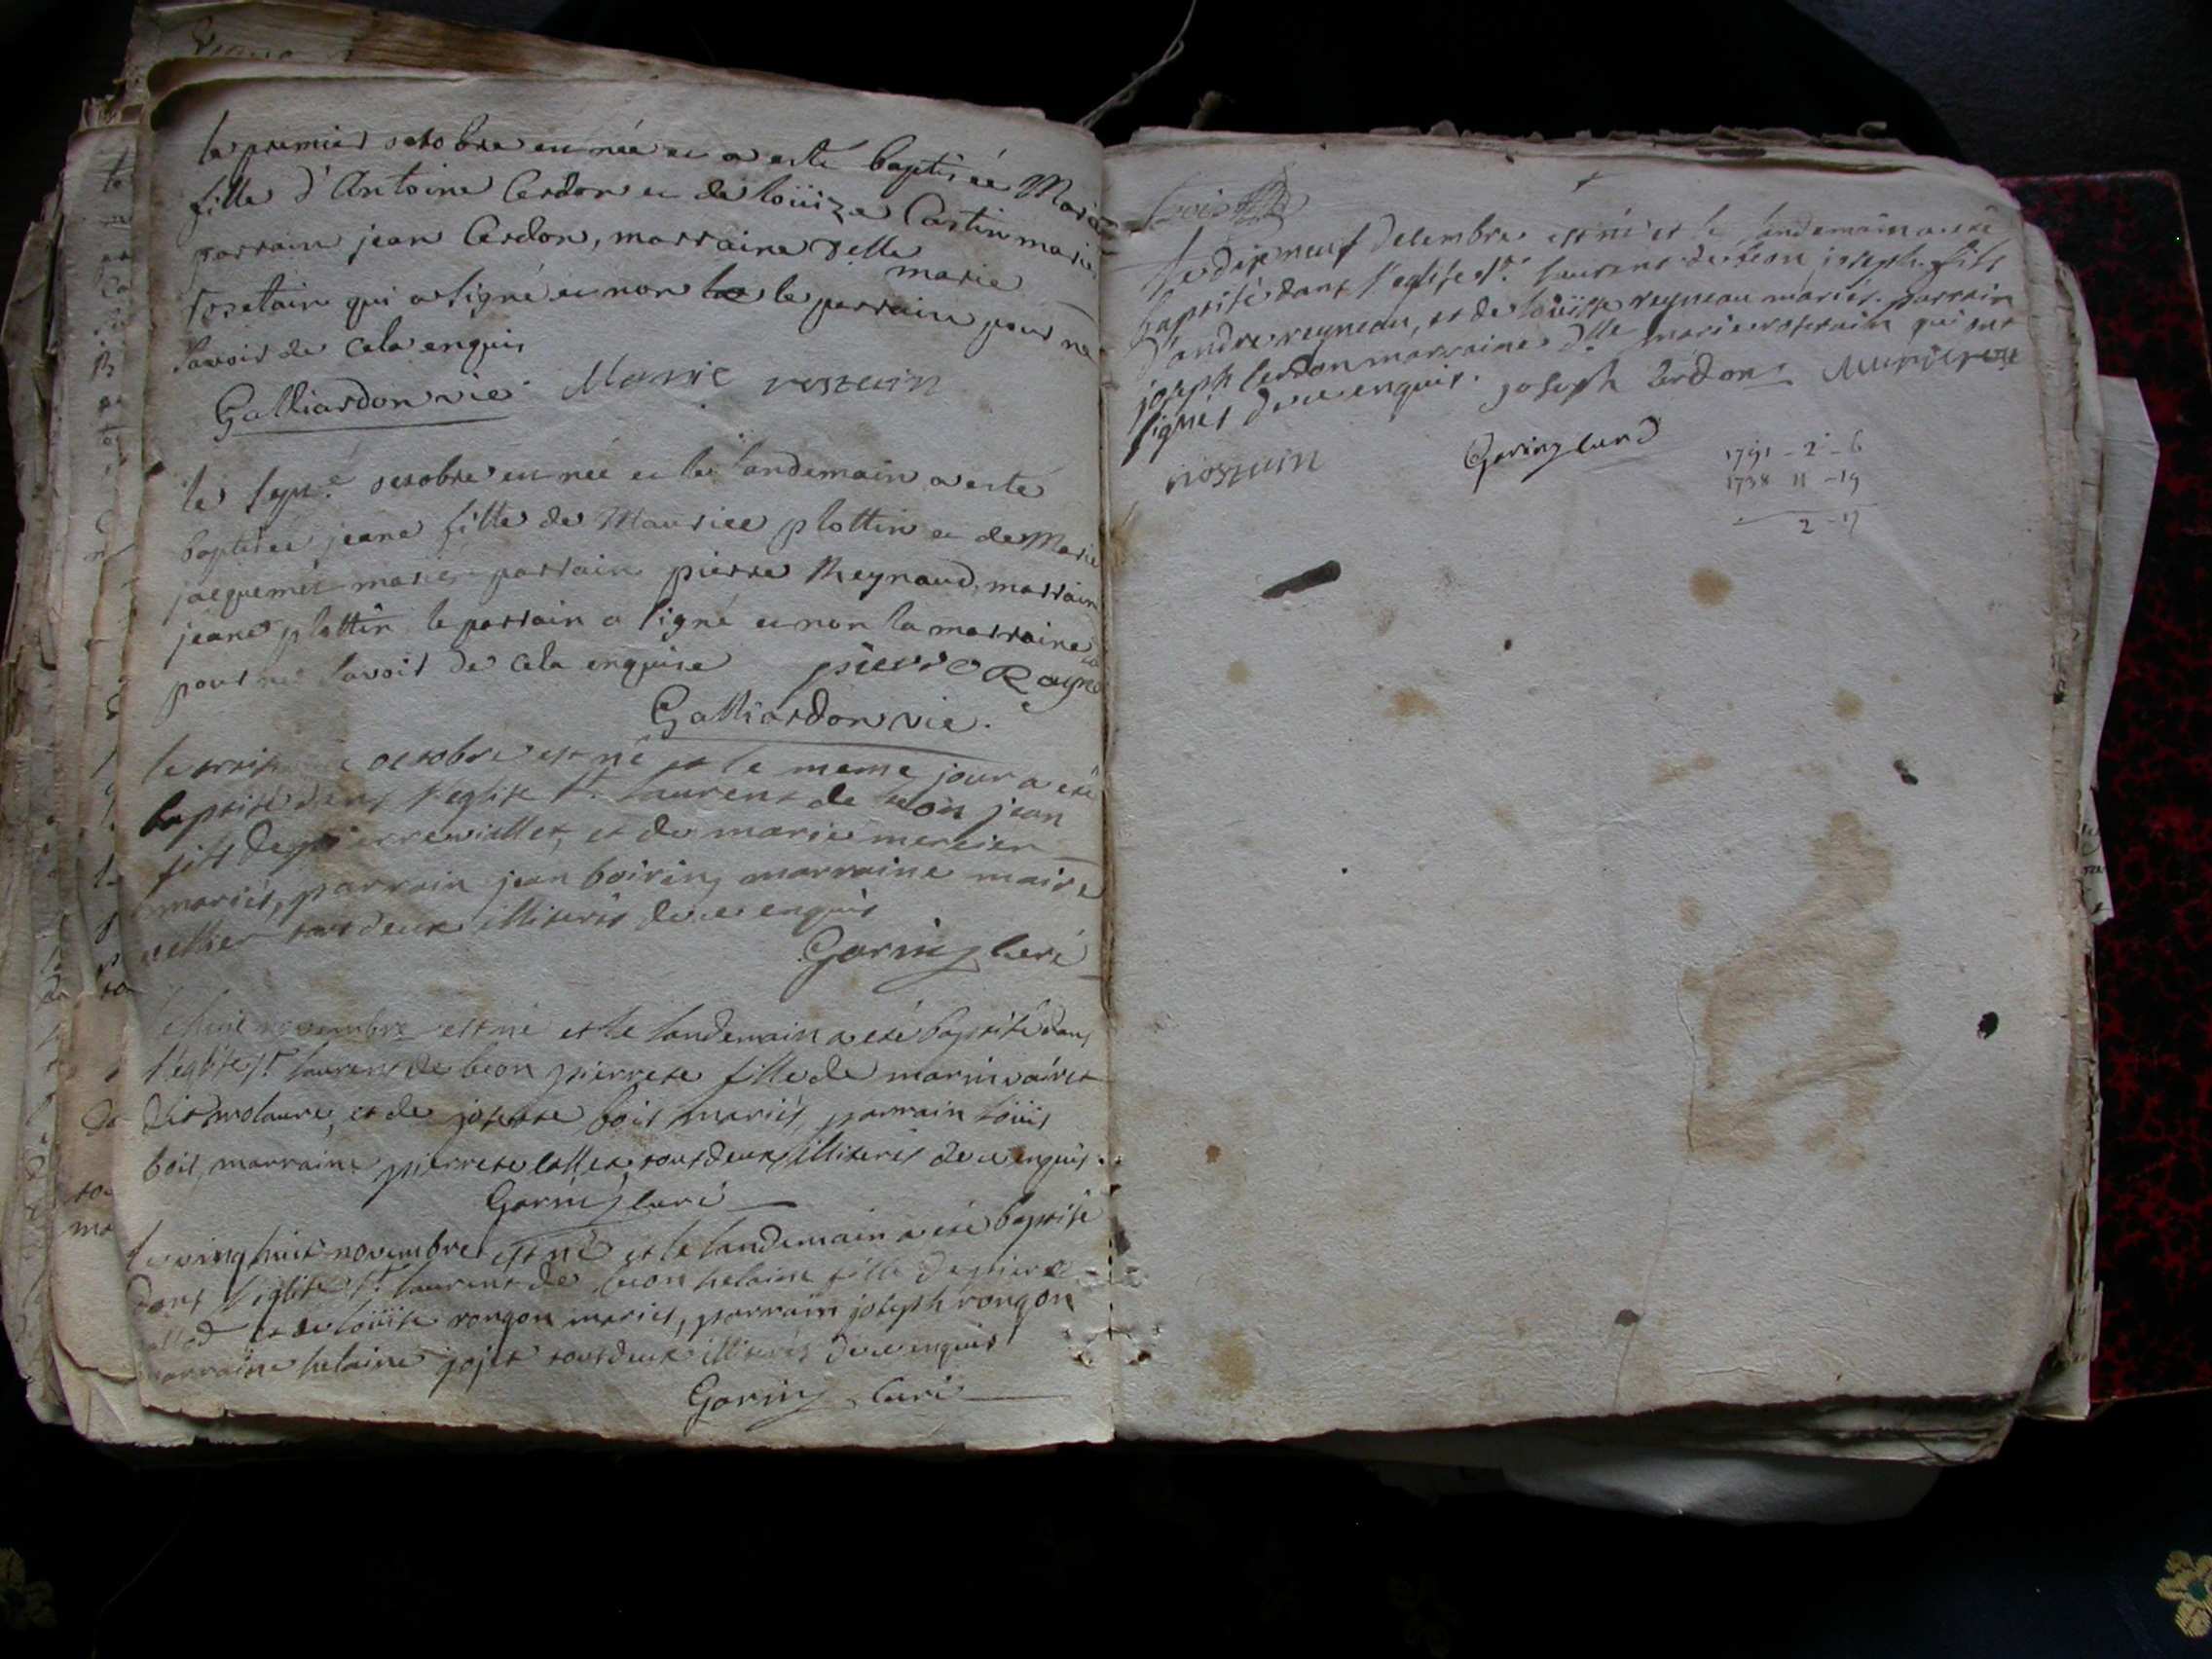 le premier octobre est née et a esté baptisée Marie
fille d'Antoine Cerdon et de loüize Castin mariés
parrain jean Cerdon, marraine delle marie
rosetain qui a signé et non le parrain pour ne
savoir de cela enquis
Galliardon vic. Marie rostain
le sept.e octobre est née et le landemain a esté
baptisée jeane fille de Maurice plottin et de Marie
jacquemet mariés parrain pierre Reynaud, marraine
jeane plottin le parrain a signé et non la marraine
pour ne savoir de cela enquise pierre Rayna
Galliardon vic.
le octobre est né et le meme jour a eté
baptisé dans l'eglise st. laurent de beon jean
fils de pierre viallet, et de marie mercier
mariés, parrain jean boirin, marraine marie
tout deux illiterés de ce enquis
Garin curé
le huit novembre est né et le landemain a eté baptisé dans
l'eglise st. laurent de beon pierrete fille de
dit molaure, et de josette bois mariés, parrain loüis
bois, marraine pierrete collet tout deux illiterés de ce enquis.
Garin curé
le vingt huit novembre est né et le landemain a eté baptisé
dans l'eglise st. laurent de beon helaine fille de pierre
et de loüise rongon mariés, parrain joseph rongon
marraine helaine jojet tout deux illiterés de ce enquis
Garin curé
le dix neuf decembre est né et le landemain a eté
baptisé dans l'eglise st. laurent de beon joseph fils
d'andre reyneau, et de loüise reyneau mariés. parrain
joseph cerdon marraine dlle marie rosetain qui ont
signés de ce enquis. joseph Cerdon
rostain Garin curé
1791 - 2 - 6
1738 11 - 19
2 - 17